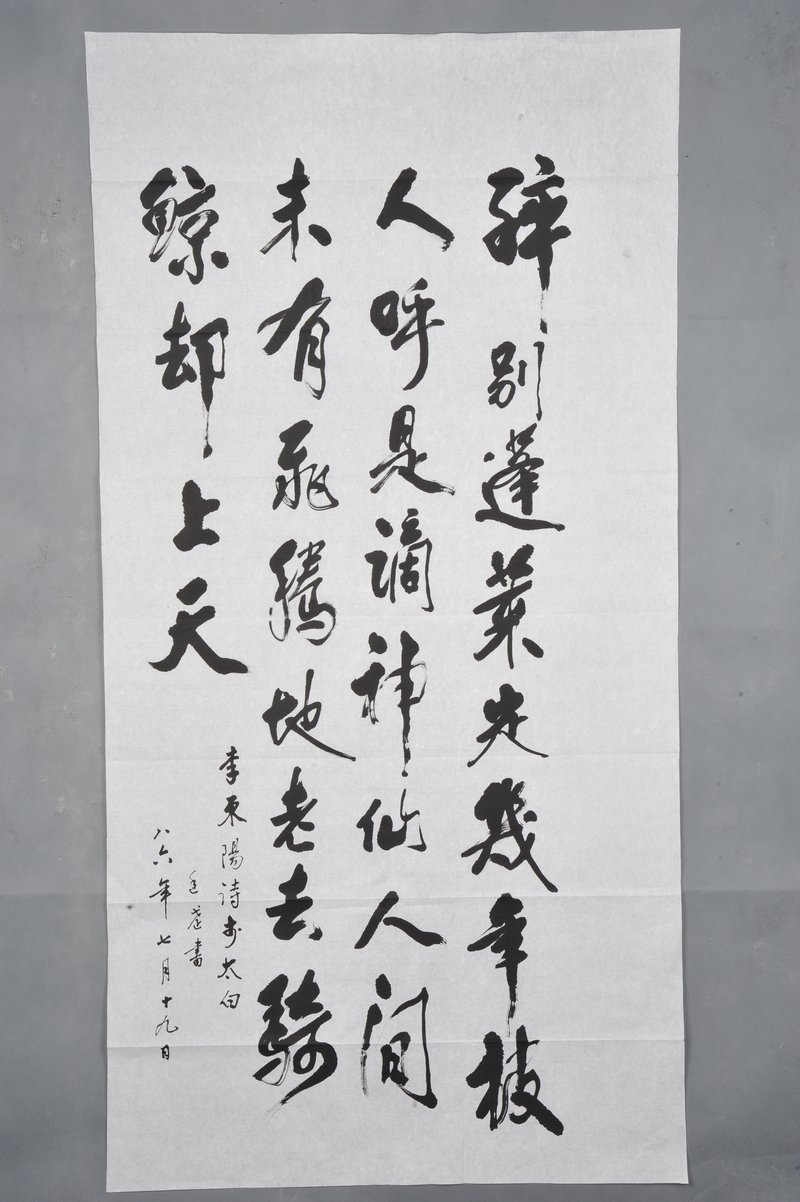 辞别蓬莱是几年被
人呼是谪神仙人间
未有飞腾地老去骑
鲸却上天
李东阳诗李太白
书
八六年七月十九日